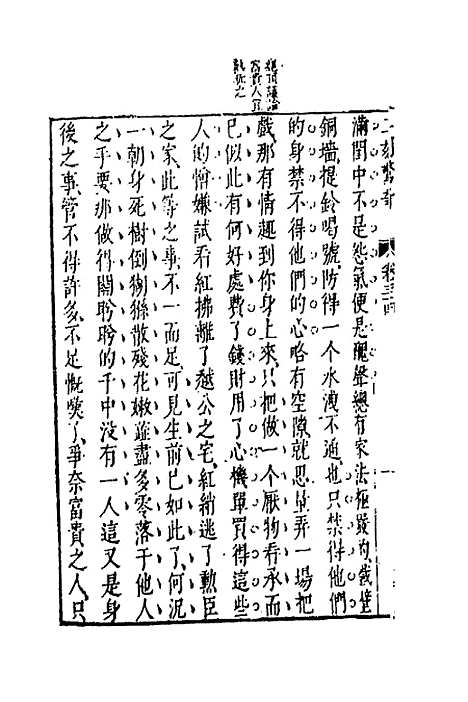 絕頂議論
富貴人宜
熟玩之
二刻驚奇　卷三十四
滿閨中不是怨氣便是醜聲總有家法極嚴的鐵壁
銅墻提鈴喝號防得一个水洩不通也只禁得他們
的身禁不得他們的心略有空隙就思量弄一場把
戲那有情趣到你身上來只把做一个厭物看承而
已似此有何好處費了錢財用了心機單買得這些
人的憎嫌試看紅拂離了越公之宅紅綃逃了勲臣
之家此等之事不一而足可見生前已如此了何況
一朝身死樹倒猢猻散殘花嫩蕊盡多零落于他人
之手要那做得關盼盼的千中沒有一人這又是身
後之事管不得許多不足慨嘆了爭奈富貴之人只